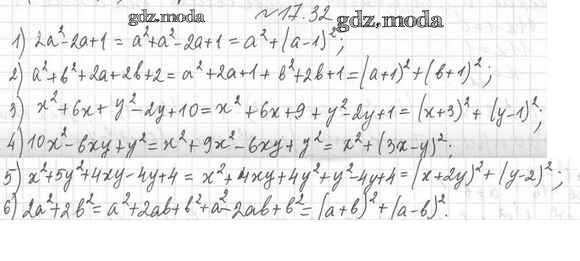 gdz.moda
№17.32
gdz.moda
1) 2a²-2a+1 = a²+a²-2a+1 = a²+(a-1)²;
2) a²+b²+2a+2b+2 = a²+2a+1 + b²+2b+1 = (a+1)²+(b+1)²;
3) x²+6x+y²-2y+10 = x²+6x+9+y²-2y+1 = (x+3)²+(y-1)²;
4) 10x²-6xy+y² = x²+9x²-6xy+y² = x²+(3x-y)²;
5) x²+5y²+4xy-4y+4 = x²+4xy+4y²+y²-4y+4 = (x+2y)²+(y-2)²;
6) 2a²+2b² = a²+2ab+b²+a²-2ab+b² = (a+b)²+(a-b)².